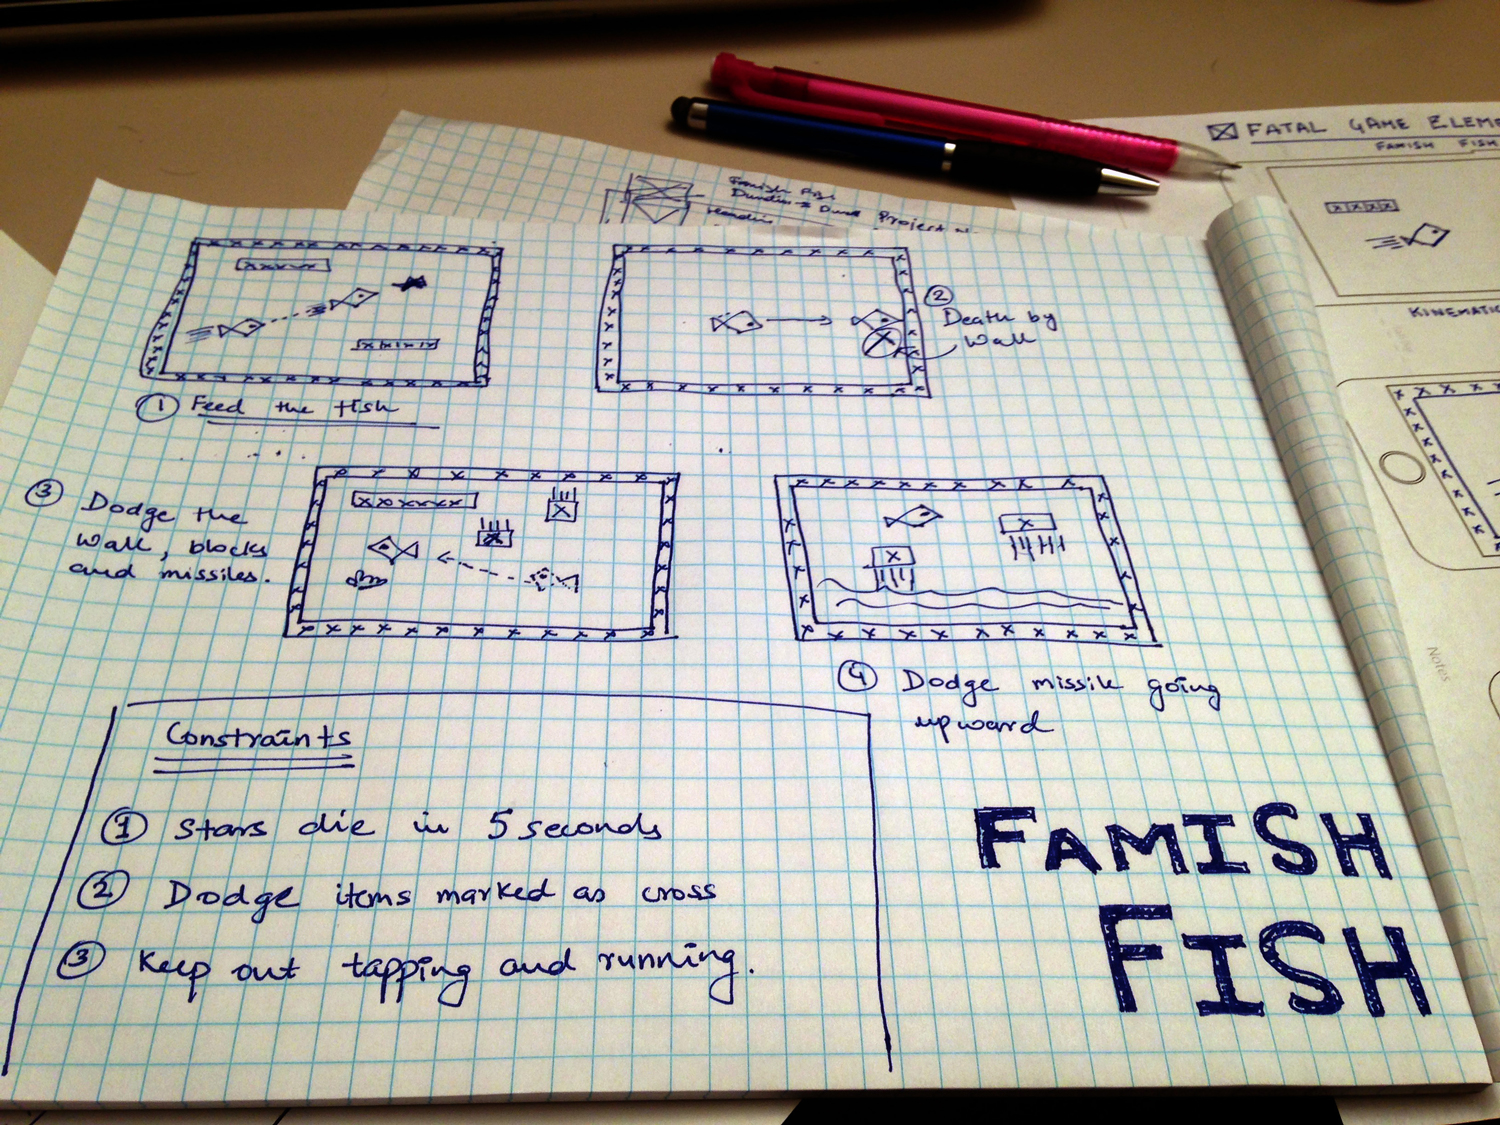 FATAL GAME ELEME
FAMISH FISH
Famish Fish
Project
KINEMATIC
Notes
① Feed the fish
② Death by
wall
③ Dodge the
wall, blocks
and missiles.
④ Dodge missile going
upward
Constraints
① Stars die in 5 seconds
② Dodge items marked as cross
③ Keep out tapping and running.
FAMISH
FISH